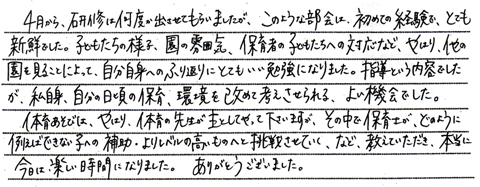 4月から、研修は何度か出させてもらいましたが、このような部会は、初めての経験で、とても
新鮮でした。子どもたちの様子、園の雰囲気、保育者の子どもたちへの対応など、やはり、他の
園を見ることによって、自分自身へのふり返りにとてもいい勉強になりました。指導という内容でした
が、私自身、自分の日頃の保育、環境を改めて考えさせられる、よい機会でした。
体育あそびは、やはり、体育の先生が主としてやって下さいますが、その中で保育士が、どのように
例えばできない子への補助・よりレベルの高いものへと挑戦させていく、など、教えていただき、本当に
今日は楽しい時間になりました。ありがとうございました。